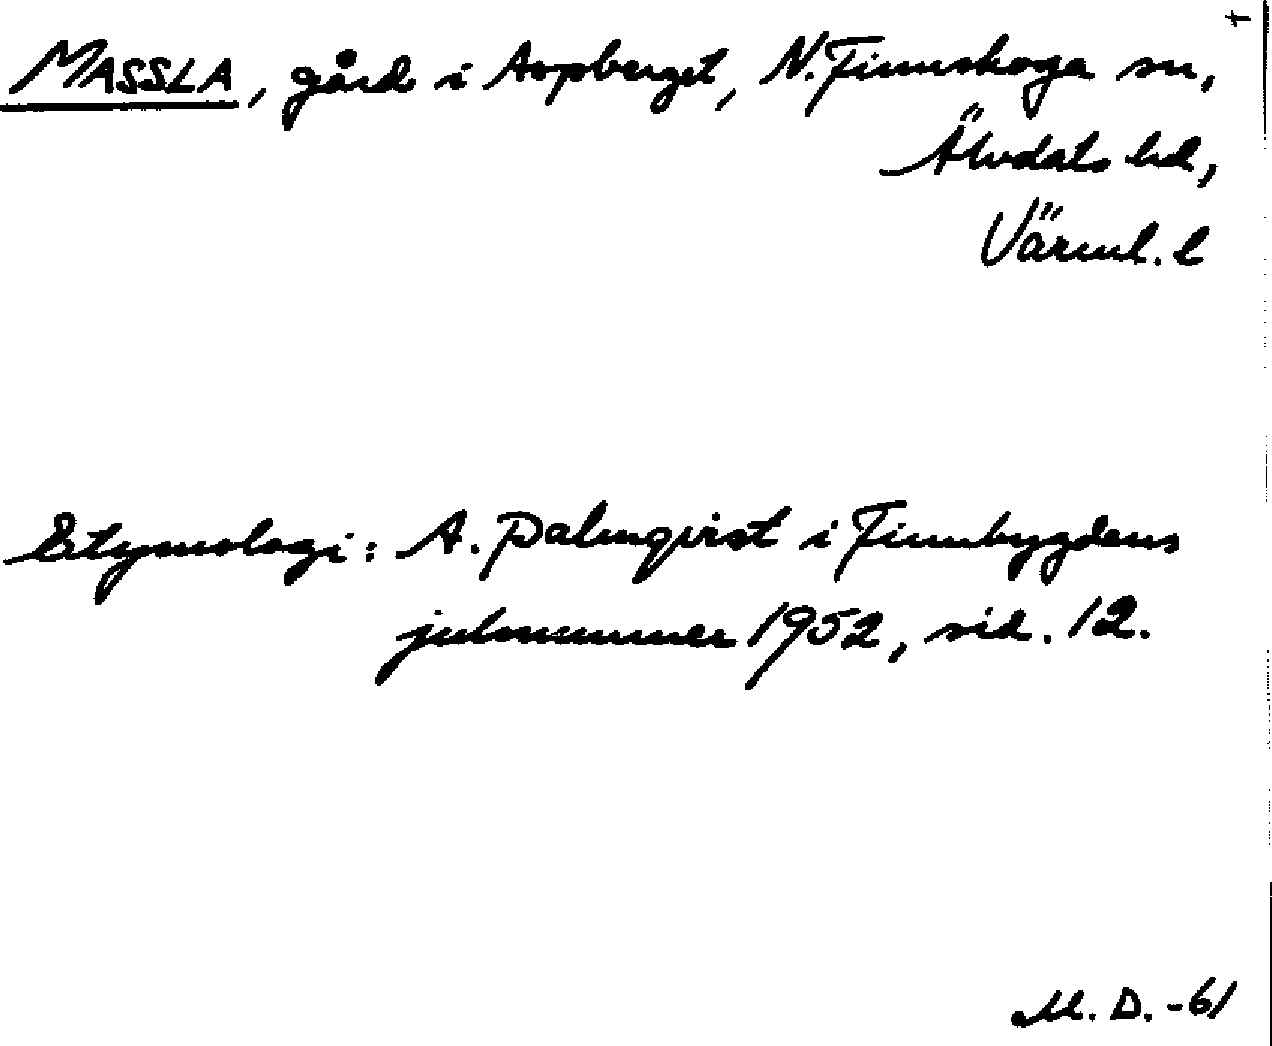 MASSLA, gård i Aspberget, N. Finnskoga sn,
Älvdals hd,
Värml. l
Etymologi: A. Palmqvist i Finnbygdens
julnummer 1952, sid. 12.
M. D. -61